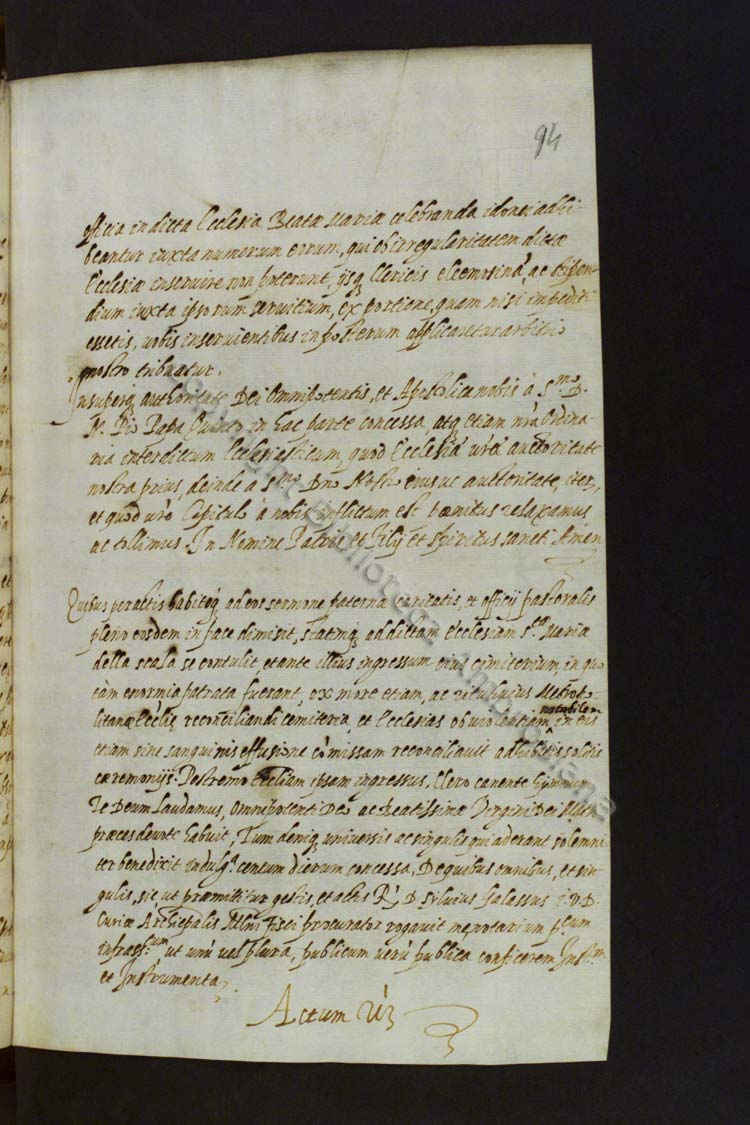 94
officia in dicta Ecclesia Beatæ Mariæ celebranda idonei adhi-
beantur iuxta numerum eorum, qui ob irregularitatem dictæ
Ecclesiæ inseruire non poterunt, ijsq Clericis eleemosina, ac stipen-
dium iuxta ipsorum seruitium, ex portione, quam nisi impediti
essetis, uobis inseruientibus in posterum applicaretur arbitrio
nostro tribuatur.
Insuperq authoritate Dei Omnipotentis, et Apostolica nobis à S.mo D.
N. Pio Papa Quinto in hac parte concessa, atq etiam nrà Ordina-
ria interdictum Ecclesiasticum, quod Ecclesiæ uræ auctoritate
nostra prius, deinde a S.mo Dno Nostro eiusue auctoritate, item,
et quod uro Capitulo à nobis inflictum est pænitus relaxamus
ac tollimus. In Nomine Patris et Filij et Spiritus Sancti Amen
Quibus peractis habitoq ad eos sermone paternæ caritatis, et officij pastoralis
pleno eosdem in pace dimisit, statimq ad dictam Ecclesiam S.tæ Mariæ
della scala se contulit, et ante illius ingressum eius cimiterium, in quo
tàm enormia patrata fuerant, ex more etiam, ac ritu huius Metropo-
litanæ Ecclîæ reconciliandi cemiteria, et Ecclesias ob uiolentiam notabilem in eis
etiam sine sanguinis effusione cômissam reconciliauit adhibitis solitis
cæremonijs. Postremo Eccliam ipsam ingressus, Clero canente hymnum
Te Deum Laudamus, Omnipotenti Deo ac Beatissimæ Virgini Dei Matri
præces deuote habuit, Tum deniq uniuersis ac singulis qui aderant solemni
ter benedixit indulg.a centum dierum concessa, De quibus omnibus, et sin-
gulis, sic ut præmittitur gestis, et actis R. D. Siluius Galassus i. V. D.
Curiæ Archiepalis Mlni Fisci procurator rogauit me notarium p.cum
infrasc.um ut unû uel plura, publicum uerû publica conficerem Inst.m
et Instrumenta.
Actum
Copyright Biblioteca Ambrosiana